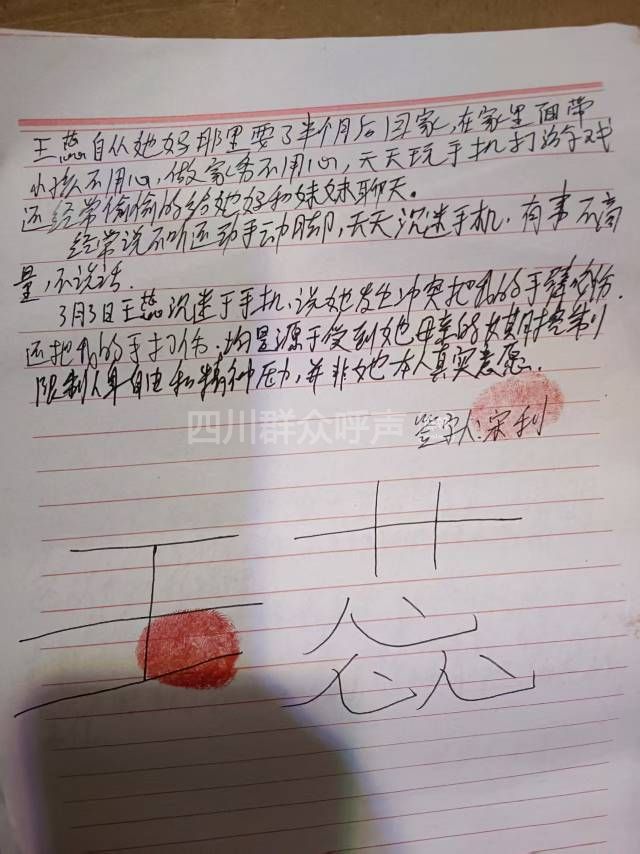 王蕊自从她妈那里耍了半个月后回家,在家里面带
小孩不用心,做家务不用心,天天玩手机打游戏
还经常偷偷的给她妈和妹妹聊天。
经常说不听还动手动脚,天天沉迷手机,有事不商
量,不说话.
3月3日王蕊沉迷于手机,说她发生冲突把我的手
还把我的手打伤.均是源于受到她母亲的长期控制
限制人身自由和精神压力,并非她本人真实意愿.
签字人:宋利
四川群众呼声
王蕊